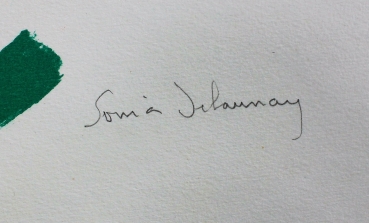 Sonia Delaunay